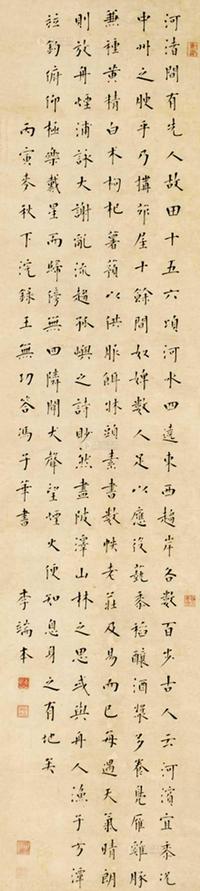 河渚間有先人故田十五六頃河水四遶東西趨岸各數百步古人云河濱宜黍況
中州之腴乎乃搆茆屋十餘間奴婢數人足以應役蓺黍稻釀酒漿多養鳧雁雞豚
兼種黃精白朮枸杞薯蕷以供服餌牀頭素書數帙老莊及易而已每遇天氣晴朗
則放舟煙浦詠大謝亂流趨孤嶼之詩眇然盡陂澤山林之思或與舟人漁子方潭
竝釣俯仰極樂戴星而歸傍無四隣聞犬聲望煙火便知息身之有地矣
丙寅麥秋下浣錄王無功答馮子華書 李端本